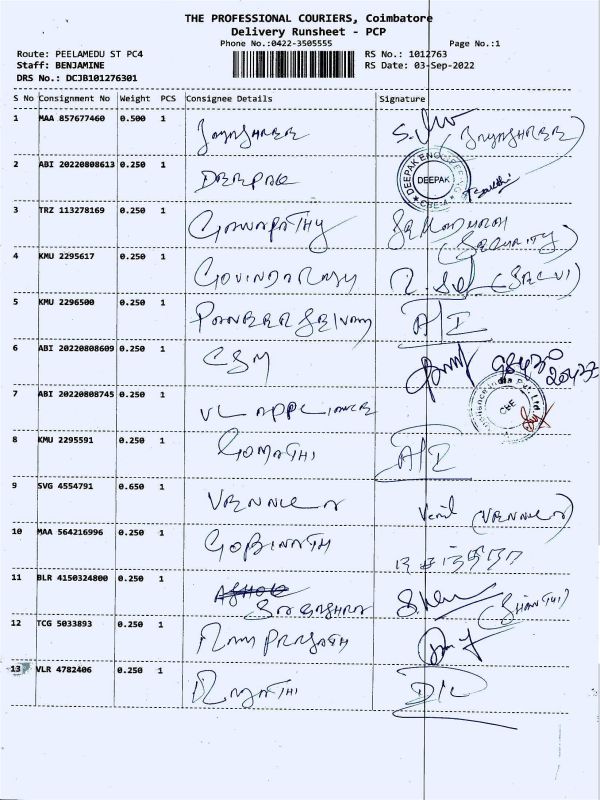 THE PROFESSIONAL COURIERS, Coimbatore
Delivery Runsheet - PCP
Phone No.:0422-3505555 Page No.:1
Route: PEELAMEDU ST PC4 RS No.: 1012763
Staff: BENJAMINE RS Date: 03-Sep-2022
DRS No.: DCJB101276301
S No Consignment No Weight PCS Consignee Details Signature
1 MAA 857677460 0.500 1 JAYASHREE (JAYASHREE)
2 ABI 20220808613 0.250 1 DEEPAK DEEPAK
3 TRZ 113278169 0.250 1 GANAPATHY (SECURITY)
4 KMU 2295617 0.250 1 GOVINDARAJ (SELVI)
5 KMU 2296500 0.250 1 PANNEERSELVAM A/I
6 ABI 20220808609 0.250 1 CSM
7 ABI 20220808745 0.250 1 VL APPLIANCE
8 KMU 2295591 0.250 1 GOMATHI A/I
9 SVG 4554791 0.650 1 VENNILA (VENNILA)
10 MAA 564216996 0.250 1 GOPINATH
11 BLR 4150324800 0.250 1 ASHOK (SHANTHI)
12 TCG 5033893 0.250 1 RAM PRASATH
13 VLR 4782406 0.250 1 D/L